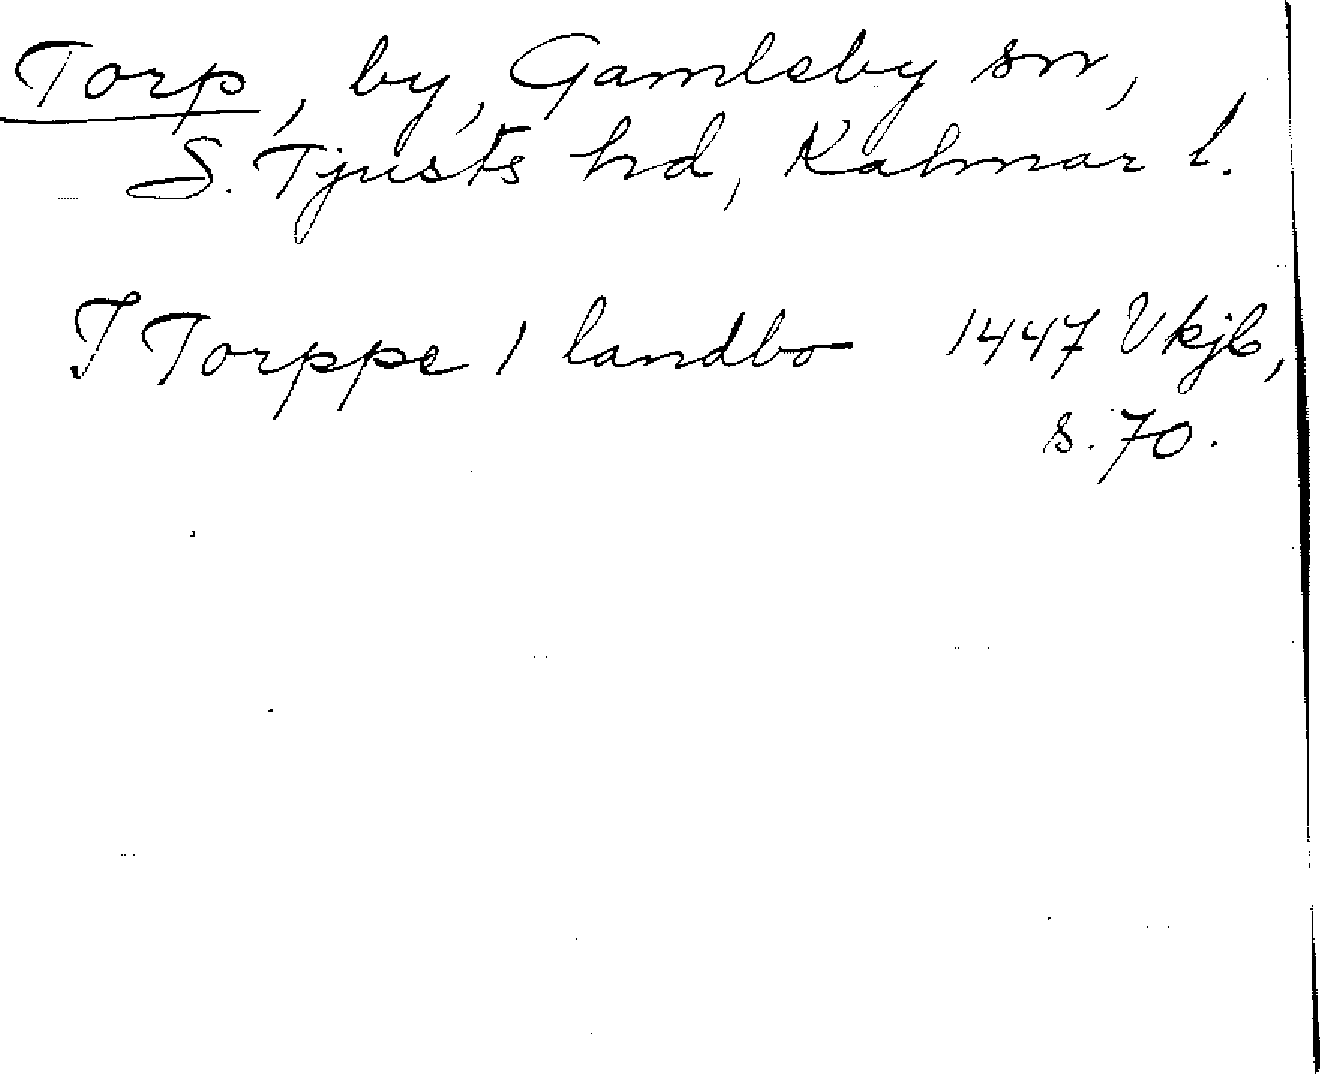 Torp, by, Gamleby sn,
S. Tjusts hd, Kalmar l.
J Torppe 1 landbo 1447 Vkjb,
s. 70.